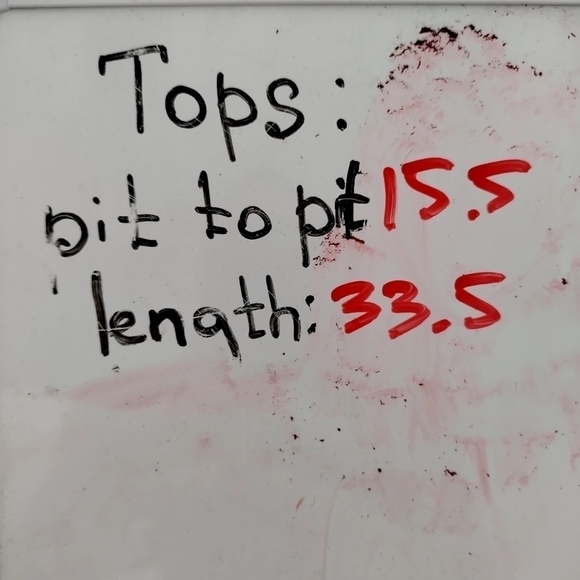 Tops:
pit to pit 15.5
length: 33.5